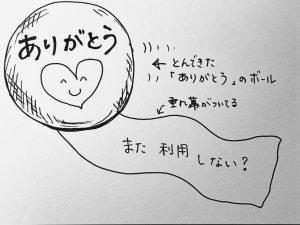 ありがとう
とんできた
「ありがとう」のボール
垂れ幕がついてる
また 利用
しない？